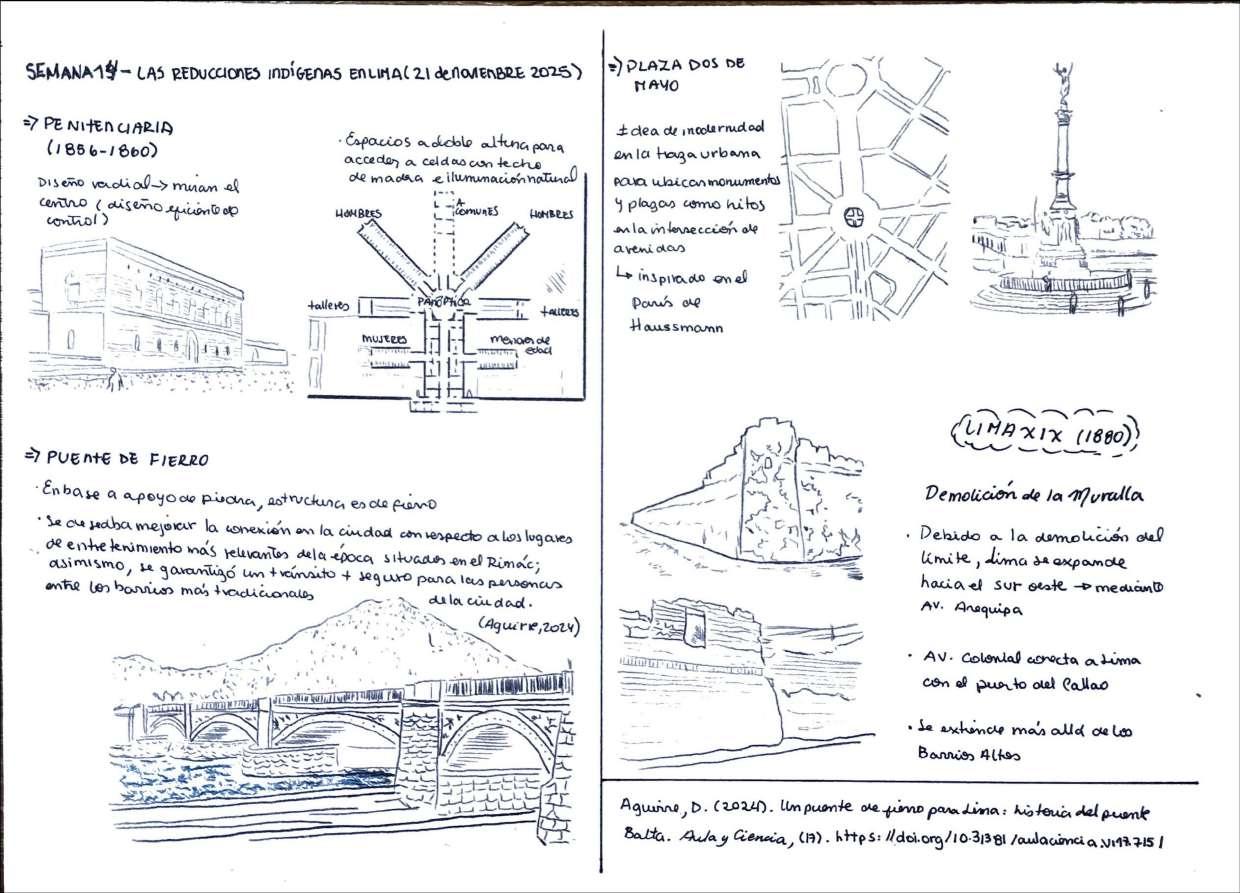 SEMANA 14 - LAS REDUCCIONES INDÍGENAS EN LIMA (21 de NOVIEMBRE 2025)
=> PENITENCIARIA
(1856-1860)
Diseño radial -> miran el
centro (diseño eficiente de
control)
· Espacios a doble altura para
acceder a celdas con techo
de madera e iluminación natural
HOMBRES
A
COMUNES
HOMBRES
talleres
PANÓPTICA
TALLERES
MUJERES
menores de
edad
=> PUENTE DE FIERRO
· En base a apoyo de piedra, estructura es de fierro
· Se deseaba mejorar la conexión en la ciudad con respecto a los lugares
de entretenimiento más relevantes de la época situados en el Rimác;
asimismo, se garantizó un tránsito + seguro para las personas
entre los barrios más tradicionales
de la ciudad.
(Aguirre, 2024)
=> PLAZA DOS DE
MAYO
Idea de modernidad
en la traza urbana
para ubicar monumentos
y plazas como hitos
en la intersección de
avenidas
↳ inspirado en el
París de
Haussmann
LIMA XIX (1880)
Demolición de la Muralla
· Debido a la demolición del
límite, Lima se expande
hacia el sur oeste -> mediante
AV. Arequipa
· AV. Colonial conecta a Lima
con el puerto del Callao
· Se extiende más allá de los
Barrios Altos
Aguirre, D. (2024). Un puente de fierro para Lima: historia del puente
Balta. Aula y Ciencia, (17). https://doi.org/10.31381/aulaciencia.v19i7.7151